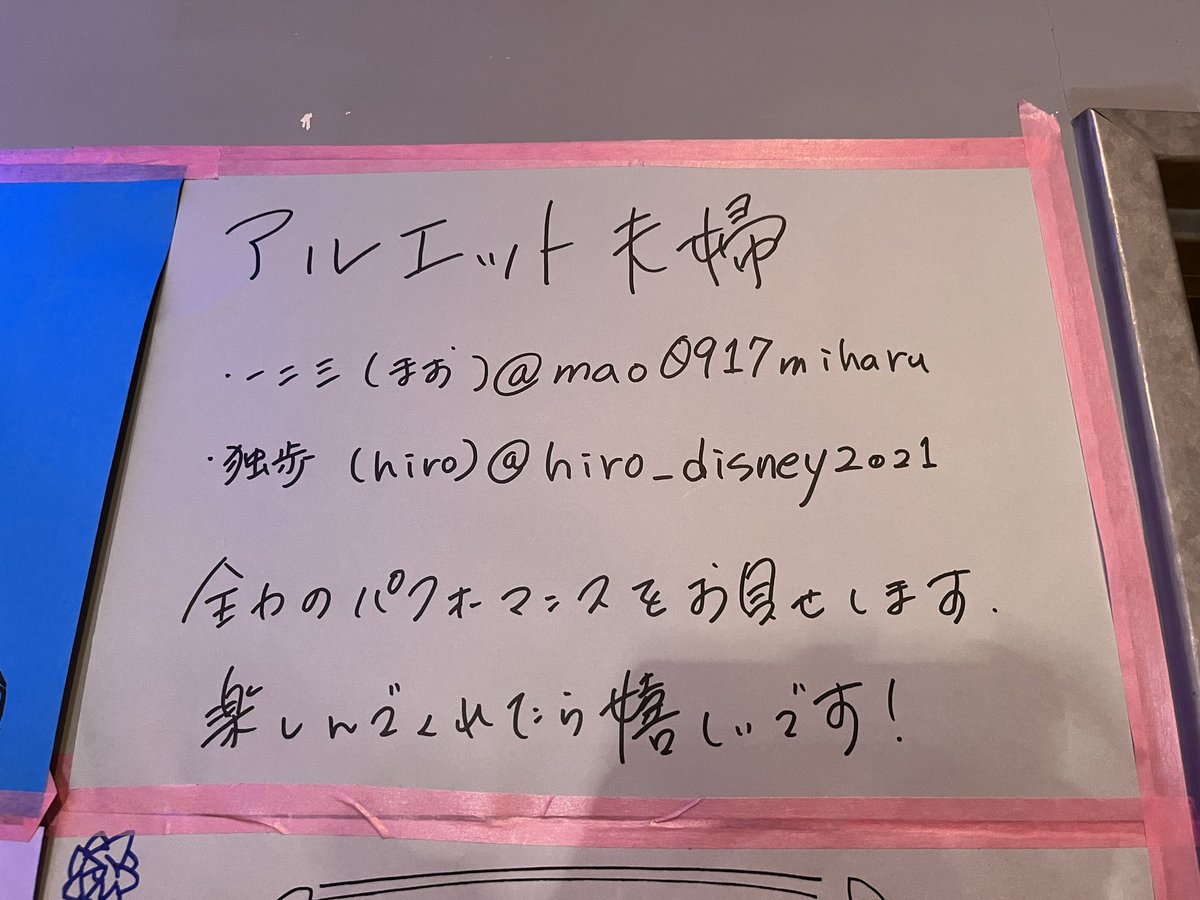 アルエット夫婦
・一二三(まお)@mao0917miharu
・独歩(hiro)@hiro_disney2021
全力のパフォーマンスをお見せします.
楽しんでくれたら嬉しいです!